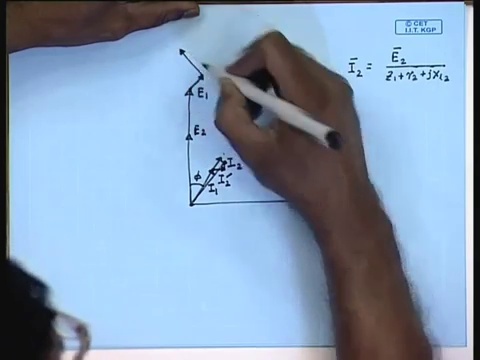 © CET
I.I.T. KGP
Ī₂ = Ē₂ / z₁+r₂+jx₁₂
E₁
E₂
I₂
φ
I₂′
I₁